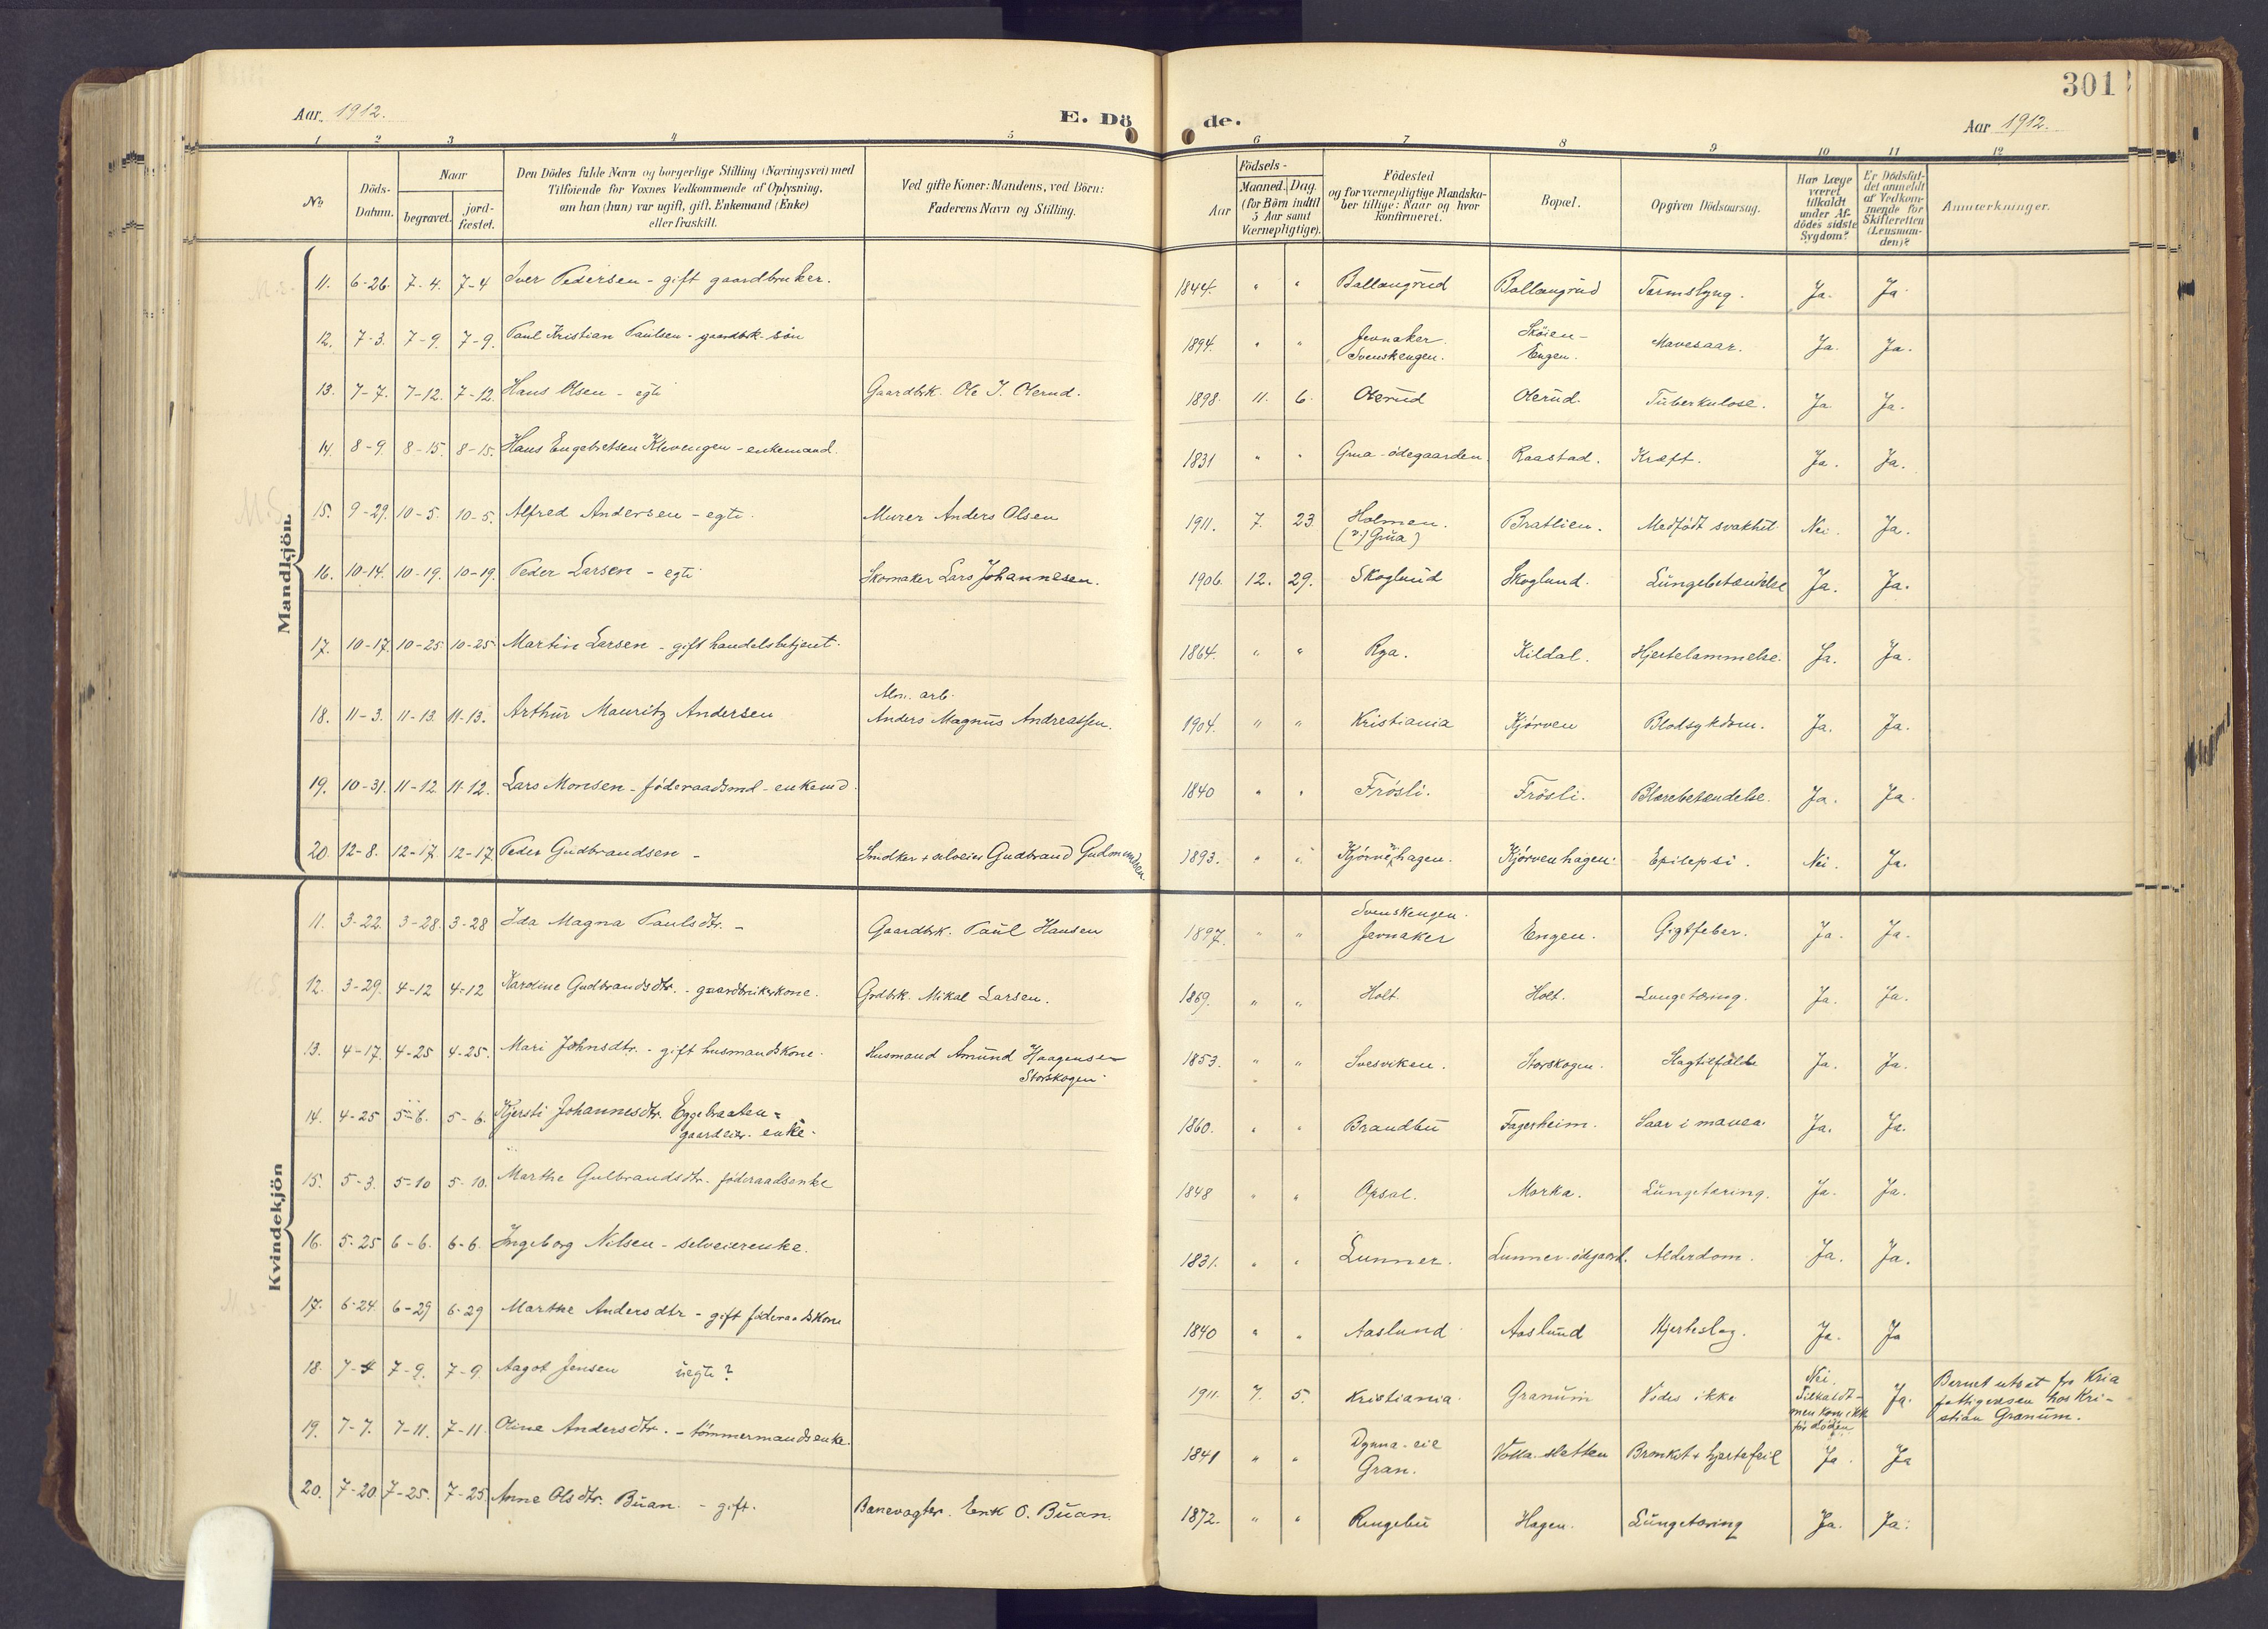 301
Aar 1912.
E. Dö de.
Aar 1912.
1 2 3 4 5 6 7 8 9 10 11 12
No.
Döds-Datum.
Naar
begravet.
jord-fæstet.
Den Dödes fulde Navn og borgerlige Stilling (Næringsvei) med
Tilföiende for Voxnes Vedkommende af Oplysning,
om han (hun) var ugift, gift, Enkemand (Enke)
eller fraskilt.
Ved gifte Koner: Mandens, ved Börn:
Faderens Navn og Stilling.
Födsels-
Aar
Maaned. Dag.
(for Börn indtil
5 Aar samt
Værnepligtige).
Födested
og for værnepligtige Mandska-
ber tillige: Naar og hvor
konfirmeret.
Bopæl.
Opgiven Dödsaarsag.
Har Læge
været
tilkaldt
under Af-
dödes sidste
Sygdom?
Er Dödsfal-
det anmeldt
af Vedkom-
mende for
Skifteretten
(Lensman-
den)?
Anmærkninger.
Mandkjön.
11. 6-26. 7-4. 7-4 Iver Pedersen - gift gaardbruker. 1844. " " Ballangrud Ballangrud Tarmslyng. Ja. Ja
12. 7-3. 7-9. 7-9. Paul Kristian Paulsen - gaardbrk. sön 1894. " " Jevnaker. Svenskengen. Sköien-Engen. Mavesaar. Ja. Ja.
13. 7-7. 7-12. 7-12. Hans Olsen - egte Gaardbrk. Ole J. Olerud. 1898. 11. 6. Olerud Olerud. Tuberkulose. Ja Ja.
14. 8-9. 8-15. 8-15. Hans Engebretsen Klevengen - enkemand. 1831 " " Grua-ödegaarden Raastad. Kræft. Ja. Ja.
15. 9-29. 10-5. 10-5. Alfred Andersen - egte. Murer Anders Olsen 1911. 7. 23. Holmen. (v./Grua) Bratlien. Medfödt svakhet Nei. Ja.
16. 10-14. 10-19. 10-19. Peder Larsen - egte Skomaker Lars Johannesen. 1906. 12. 29. Skoglund Skoglund. Lungebetændelse Ja. Ja.
17. 10-17. 10-25. 10-25. Martin Larsen - gift handelsbetjent. 1864. " " Rya. Kildal. Hjertelammelse. Ja. Ja.
18. 11-3. 11-13. 11-13. Arthur Mauritz Andersen Alm. arb. Anders Magnus Andreassen. 1904. " " Kristiania Kjörven Blodsykdom. Ja. Ja.
19. 10-31. 11-12. 11-12. Lars Monsen - föderaadsmd - enkemd. 1840 " " Frösli. Frösli. Blærebetændelse. Ja. Ja.
20. 12-8. 12-17. 12-17. Peder Gudbrandsen - Smdker + selveier Gudbrand Gudmundsen 1893. " " Kjörvenhagen. Kjörvenhagen. Epilepsi. Nei. Ja.
Kvindekjön
11. 3-22. 3-28. 3-28 Ida Magna Paulsdtr. - Gaardbrk. Paul Hansen 1897. " " Svenskengen. Jevnaker Engen. Gigtfeber. Ja. Ja.
12. 3-29. 4-12 4-12 Karoline Gudbrandsdtr. - gaardbrukerkone. Grdbrk. Mikal Larsen. 1869. " " Holt. Holt. Lungetæring. Ja. Ja.
13. 4-17. 4-25 4-25. Mari Johnsdtr. - gift husmandskone. Husmand Amund Haagensen Storskogen 1853. " " Svesviken. Storskogen. Slagtilfælde Ja. Ja.
14. 4-25 5-6. 5-6. Kjersti Johannesdtr. Eggebraaten - gaardeier-enke. 1860. " " Brandbu Fagerheim. Saar i maven. Ja. Ja.
15. 5-3. 5-10 5-10. Marthe Gulbrandsdtr. föderaadsenke 1848 " " Opsal. Morka. Lungetæring. Ja. Ja.
16. 5-25 6-6. 6-6. Ingeborg Nilsen - selveierenke. 1831. " " Lunner. Lunner-ödegaard. Alderdom. Ja. Ja.
17. 6-24. 6-29 6-29 Marthe Andersdtr - gift föderaadskone 1840 " " Aaslund Aaslund Hjerteslag. Ja. Ja
18. 7-4 7-9. 7-9. Aagot Jensen uegte? 1911. 7. 5. Kristiania. Granum Vides ikke Nei. Tilkaldt-men kom ikke för döden Ja. Barnet utsat fra Kria fattigvæsen hos Kri-stian Granum.
19. 7-7. 7-11. 7-11 Oline Andersdtr. - tömmermandsenke. 1841 " " Dynna-eie Gran. Volla-sletten Bronkit + hjertefeil Ja. Ja
20. 7-20. 7-25. 7-25 Anne Olsdtr. Buan. - gift. Banevogter. Erik O. Buan. 1872. " " Ringebu Hagen. Lungetæring Ja. Ja.